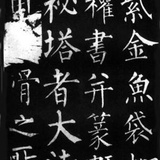 紫金魚袋
權書并篆
秘塔者大法
骨之所